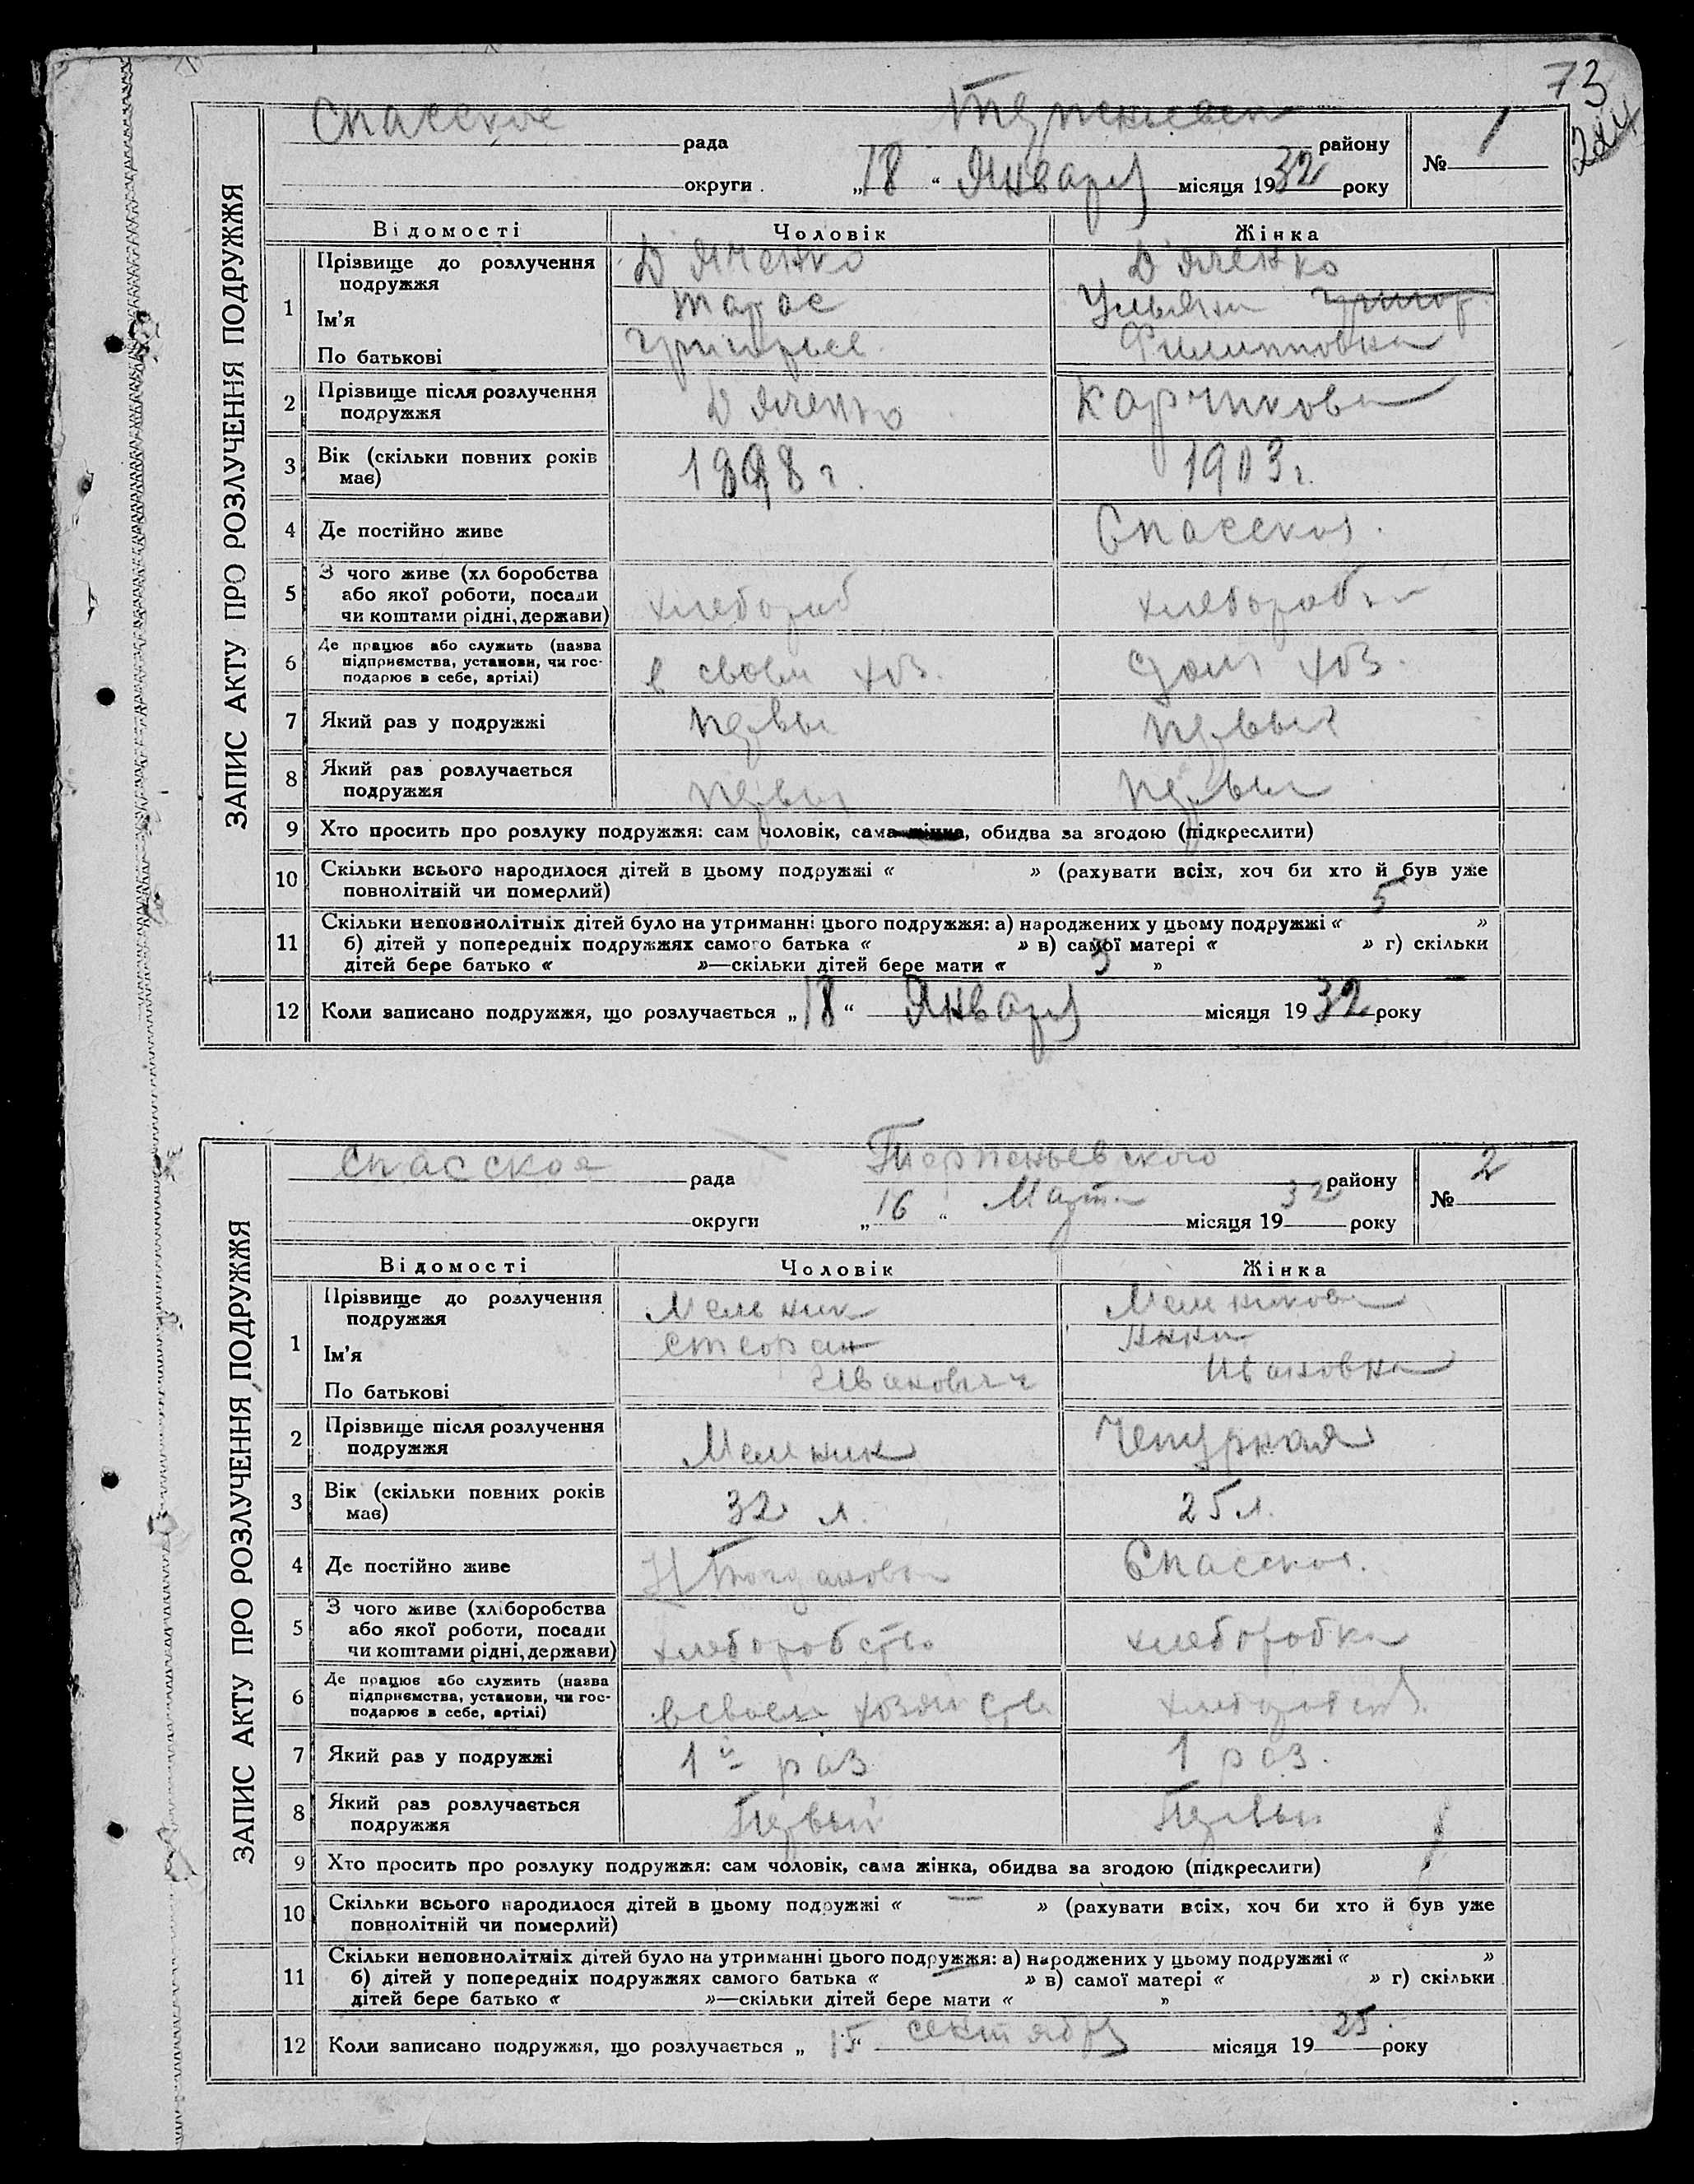 73
Спасское рада района району № 1
округи „18“ Января місяця 1932 року
ЗАПИС АКТУ ПРО РОЗЛУЧЕННЯ ПОДРУЖЖЯ
Відомості Чоловік Жінка
1 Прізвище до розлучення подружжя Дяченко Дяченко
Ім’я Тарас Ульяна
По батькові Григорьев. Филипповна
2 Прізвище після розлучення подружжя Дяченко Карчикова
3 Вік (скільки повних років має) 1903 г.
4 Де постійно живе Спасское.
5 З чого живе (хл боробства або якої роботи, посади чи коштами рідні, держави) хлебороб хлеборобка
6 Де працює або служить (назва підприємства, установи, чи господарює в себе, артілі) в своем хоз. дом хоз.
7 Який раз у подружжі первы первый
8 Який раз розлучається подружжя первы первы
9 Хто просить про розлуку подружжя: сам чоловік, сама жінка, обидва за згодою (підкреслити)
10 Скільки всього народилося дітей в цьому подружжі « » (рахувати всіх, хоч би хто й був уже
повнолітній чи померлий) 5
11 Скільки неповнолітніх дітей було на утриманні цього подружжя: а) народжених у цьому подружжі « »
б) дітей у попередніх подружжях самого батька « » в) самої матері « » г) скільки
дітей бере батько « »—скільки дітей бере мати « »
12 Коли записано подружжя, що розлучається „18“ Января місяця 1932 року
Спасское рада Терпеньевского району № 2
округи „16“ Марта місяця 1932 року
ЗАПИС АКТУ ПРО РОЗЛУЧЕННЯ ПОДРУЖЖЯ
Відомості Чоловік Жінка
1 Прізвище до розлучення подружжя Мельник Мельникова
Ім’я Степан Анна
По батькові Иванович Ивановна
2 Прізвище після розлучення подружжя Мельник Чепурная
3 Вік (скільки повних років має) 32 л. 25 л.
4 Де постійно живе Н Богдановка Спасское.
5 З чого живе (хліборобства або якої роботи, посади чи коштами рідні, держави) хлеборобство хлеборобка
6 Де працює або служить (назва підприємства, установи, чи господарює в себе, артілі) в своем хозяйстве
7 Який раз у подружжі 1й раз 1 раз.
8 Який раз розлучається подружжя Первый Первы
9 Хто просить про розлуку подружжя: сам чоловік, сама жінка, обидва за згодою (підкреслити)
10 Скільки всього народилося дітей в цьому подружжі « — » (рахувати всіх, хоч би хто й був уже
повнолітній чи померлий)
11 Скільки неповнолітніх дітей було на утриманні цього подружжя: а) народжених у цьому подружжі « »
б) дітей у попередніх подружжях самого батька « — » в) самої матері « » г) скільки
дітей бере батько « »—скільки дітей бере мати « »
12 Коли записано подружжя, що розлучається „15“ сентября місяця 1925. року